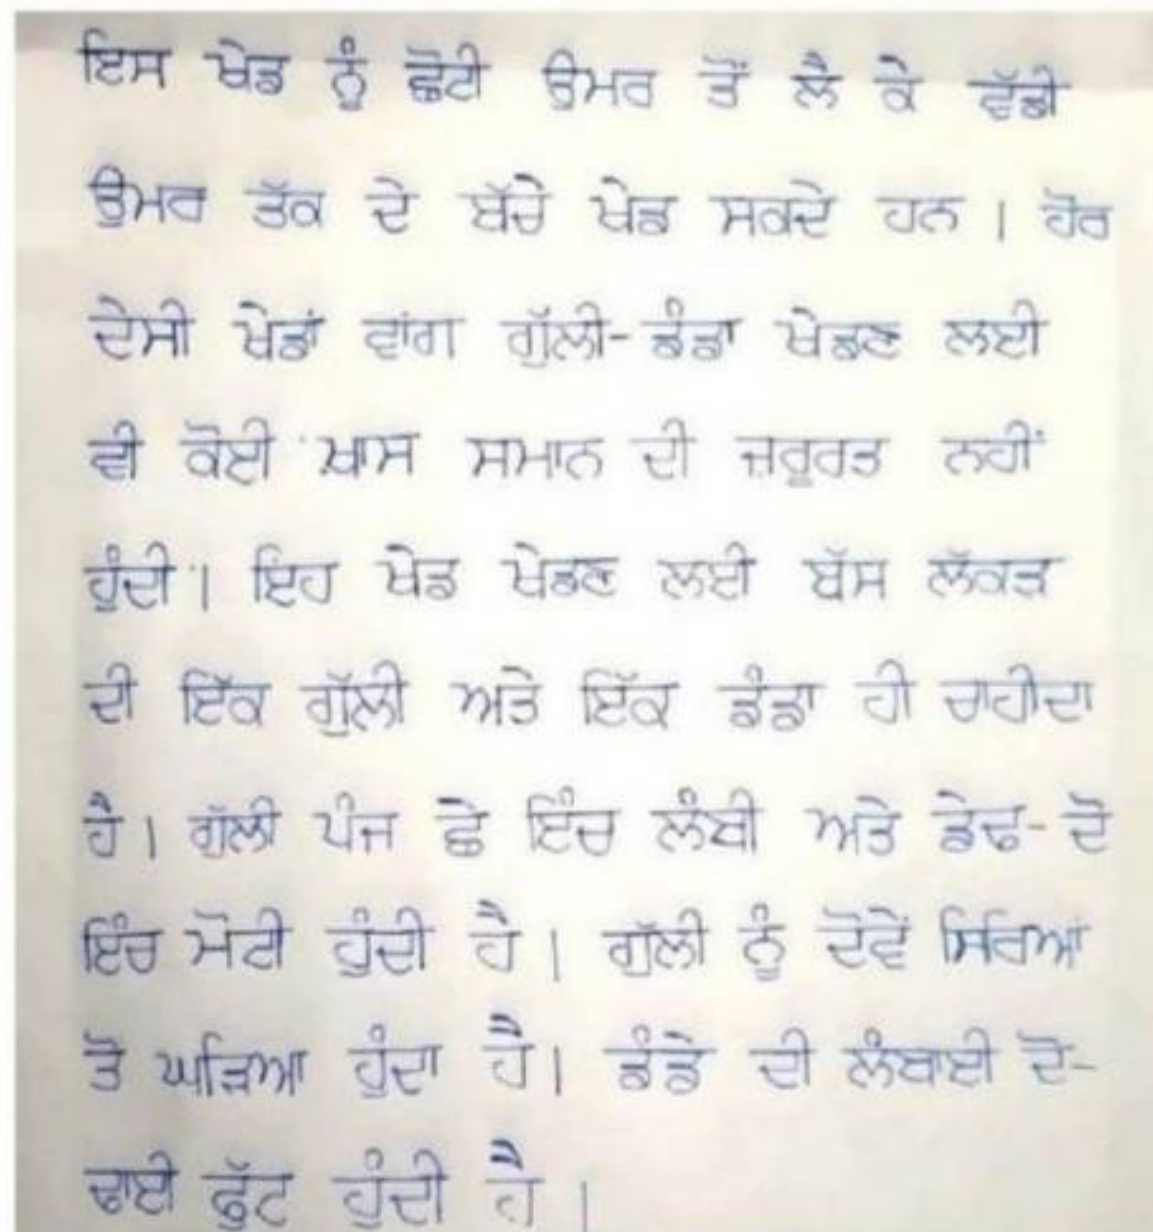 ਇਸ ਖੇਡ ਨੂੰ ਛੋਟੀ ਉਮਰ ਤੋਂ ਲੈ ਕੇ ਵੱਡੀ
ਉਮਰ ਤੱਕ ਦੇ ਬੱਚੇ ਖੇਡ ਸਕਦੇ ਹਨ । ਹੋਰ
ਦੇਸੀ ਖੇਡਾਂ ਵਾਂਗ ਗੁੱਲੀ-ਡੰਡਾ ਖੇਡਣ ਲਈ
ਵੀ ਕੋਈ ਖ਼ਾਸ ਸਮਾਨ ਦੀ ਜ਼ਰੂਰਤ ਨਹੀਂ
ਹੁੰਦੀ । ਇਹ ਖੇਡ ਖੇਡਣ ਲਈ ਬੱਸ ਲੱਕੜ
ਦੀ ਇੱਕ ਗੁੱਲੀ ਅਤੇ ਇੱਕ ਡੰਡਾ ਹੀ ਚਾਹੀਦਾ
ਹੈ । ਗੁੱਲੀ ਪੰਜ ਛੇ ਇੰਚ ਲੰਬੀ ਅਤੇ ਡੇਢ-ਦੋ
ਇੰਚ ਮੋਟੀ ਹੁੰਦੀ ਹੈ । ਗੁੱਲੀ ਨੂੰ ਦੋਵੇਂ ਸਿਰਿਆਂ
ਤੋ ਘੜਿਆ ਹੁੰਦਾ ਹੈ । ਡੰਡੇ ਦੀ ਲੰਬਾਈ ਦੋ-
ਢਾਈ ਫੁੱਟ ਹੁੰਦੀ ਹੈ ।